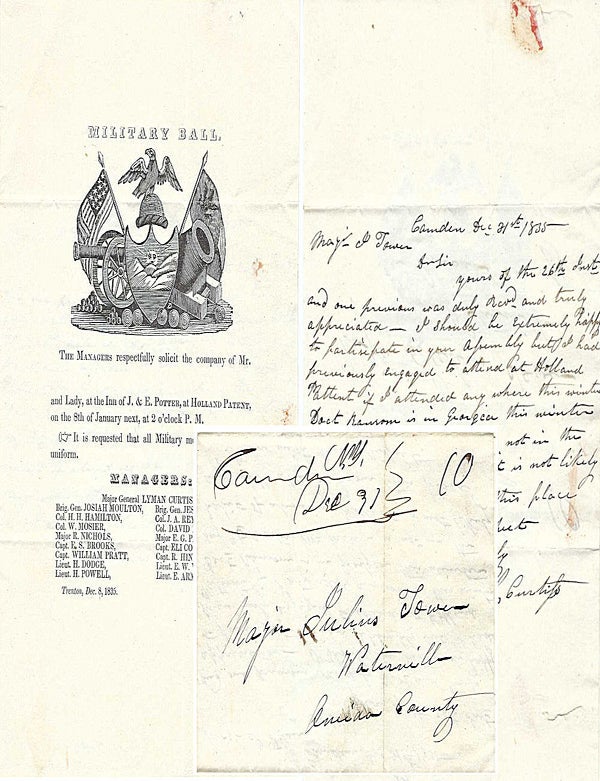 MILITARY BALL.
THE MANAGERS respectfully solicit the company of Mr.
and Lady, at the Inn of J. & E. POTTER, at HOLLAND PATENT,
on the 8th of January next, at 2 o'clock P. M.
☞ It is requested that all Military
uniform.
MANAGERS:
Major General LYMAN CURTIS
Brig. Gen. JOSIAH MOULTON,
Col. H. H. HAMILTON,
Col. W. MOSIER,
Major R. NICHOLS,
Capt. E. S. BROOKS,
Capt. WILLIAM PRATT,
Lieut. H. DODGE,
Lieut. H. POWELL,
Brig. Gen. JES
Col. J. A. RE
Col. DAVID
Major E. G. P
Capt. ELI CO
Capt. R. HIN
Lieut. E. W.
Lieut. E. AR
Trenton, Dec. 8, 1835.
Camden Dec 31st 1835
Majr J Tower
Dr Sir
yours of the 26th Inst
and one previous was duly Recd and truly
appreciated — I should be Extremely happy
to participate in your Assembly but I had
previously engaged to attend at Holland
Pattent if I attended any where this winter
Doct Ransom is in Georgia this winter
not in the
it is not likely
this place
Curtiss
Camden NY.
Dec 31
10
Major Julius Tower
Waterville
Oneida County